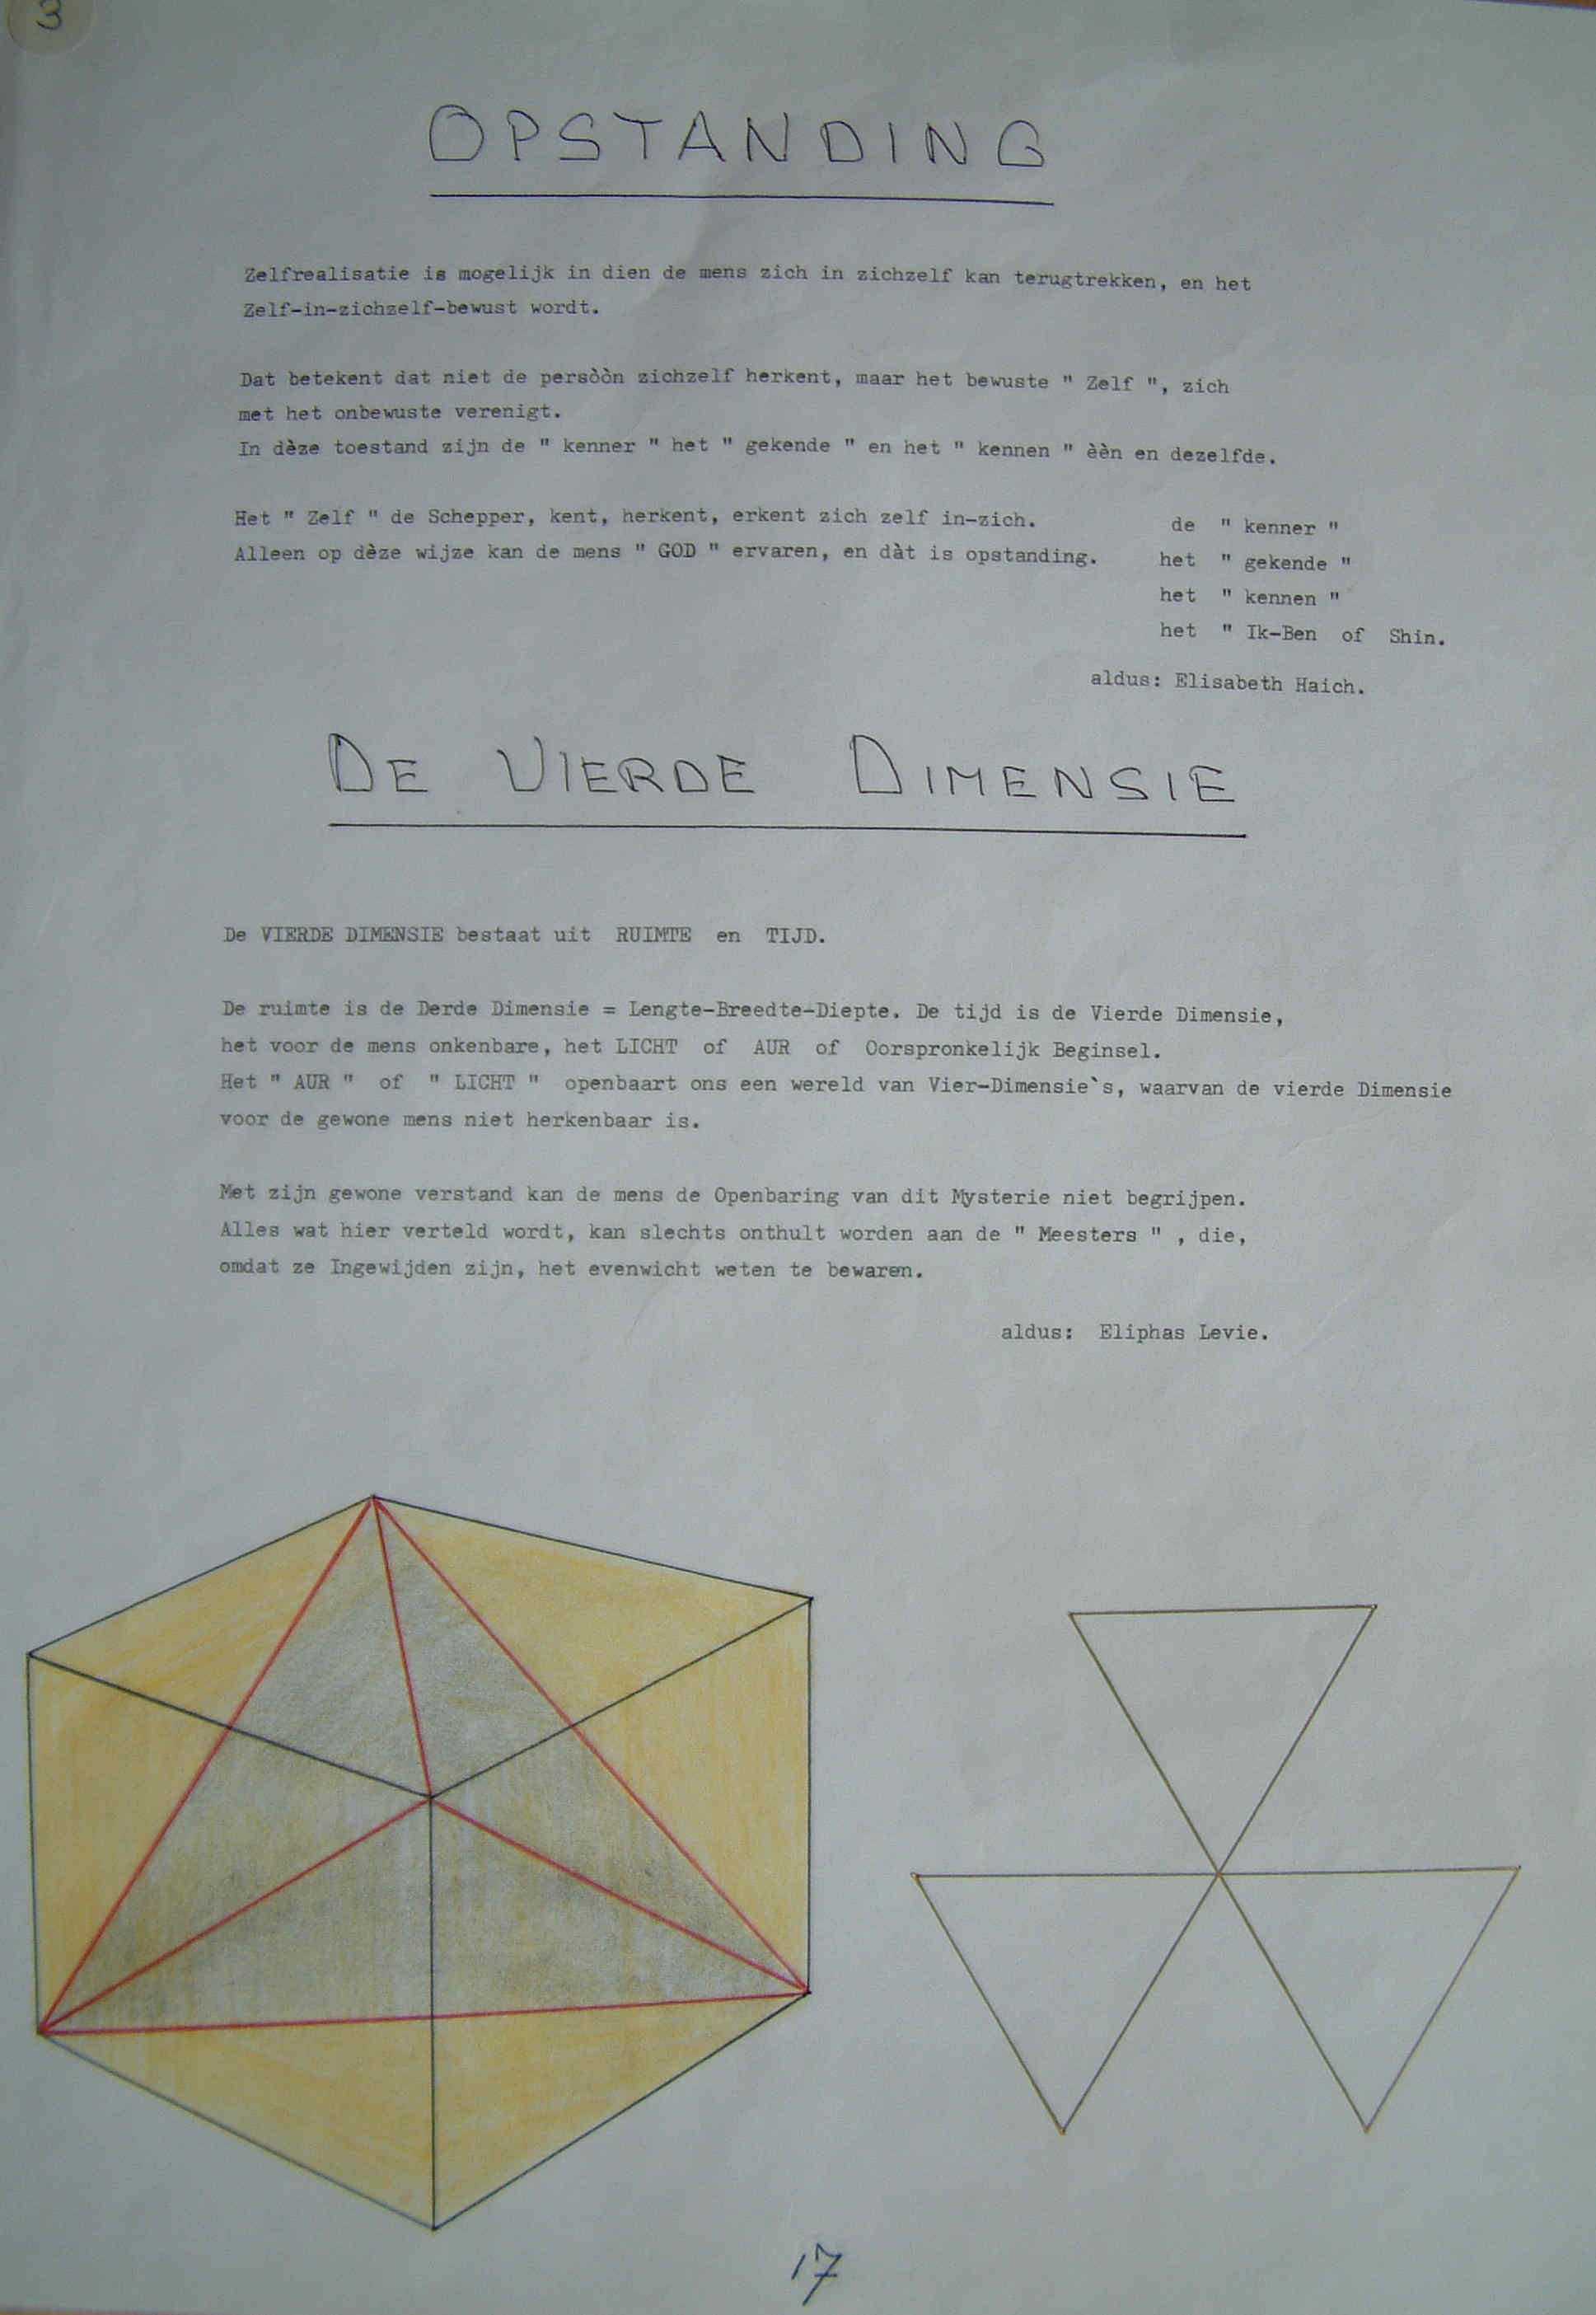 3
OPSTANDING
Zelfrealisatie is mogelijk in dien de mens zich in zichzelf kan terugtrekken, en het
Zelf-in-zichzelf-bewust wordt.
Dat betekent dat niet de persòòn zichzelf herkent, maar het bewuste " Zelf ", zich
met het onbewuste verenigt.
In dèze toestand zijn de " kenner " het " gekende " en het " kennen " èèn en dezelfde.
Het " Zelf " de Schepper, kent, herkent, erkent zich zelf in-zich.
Alleen op dèze wijze kan de mens " GOD " ervaren, en dàt is opstanding.
de " kenner "
het " gekende "
het " kennen "
het " Ik-Ben of Shin.
aldus: Elisabeth Haich.
DE VIERDE DIMENSIE
De VIERDE DIMENSIE bestaat uit RUIMTE en TIJD.
De ruimte is de Derde Dimensie = Lengte-Breedte-Diepte. De tijd is de Vierde Dimensie,
het voor de mens onkenbare, het LICHT of AUR of Oorspronkelijk Beginsel.
Het " AUR " of " LICHT " openbaart ons een wereld van Vier-Dimensie`s, waarvan de vierde Dimensie
voor de gewone mens niet herkenbaar is.
Met zijn gewone verstand kan de mens de Openbaring van dit Mysterie niet begrijpen.
Alles wat hier verteld wordt, kan slechts onthult worden aan de " Meesters " , die,
omdat ze Ingewijden zijn, het evenwicht weten te bewaren.
aldus: Eliphas Levie.
17